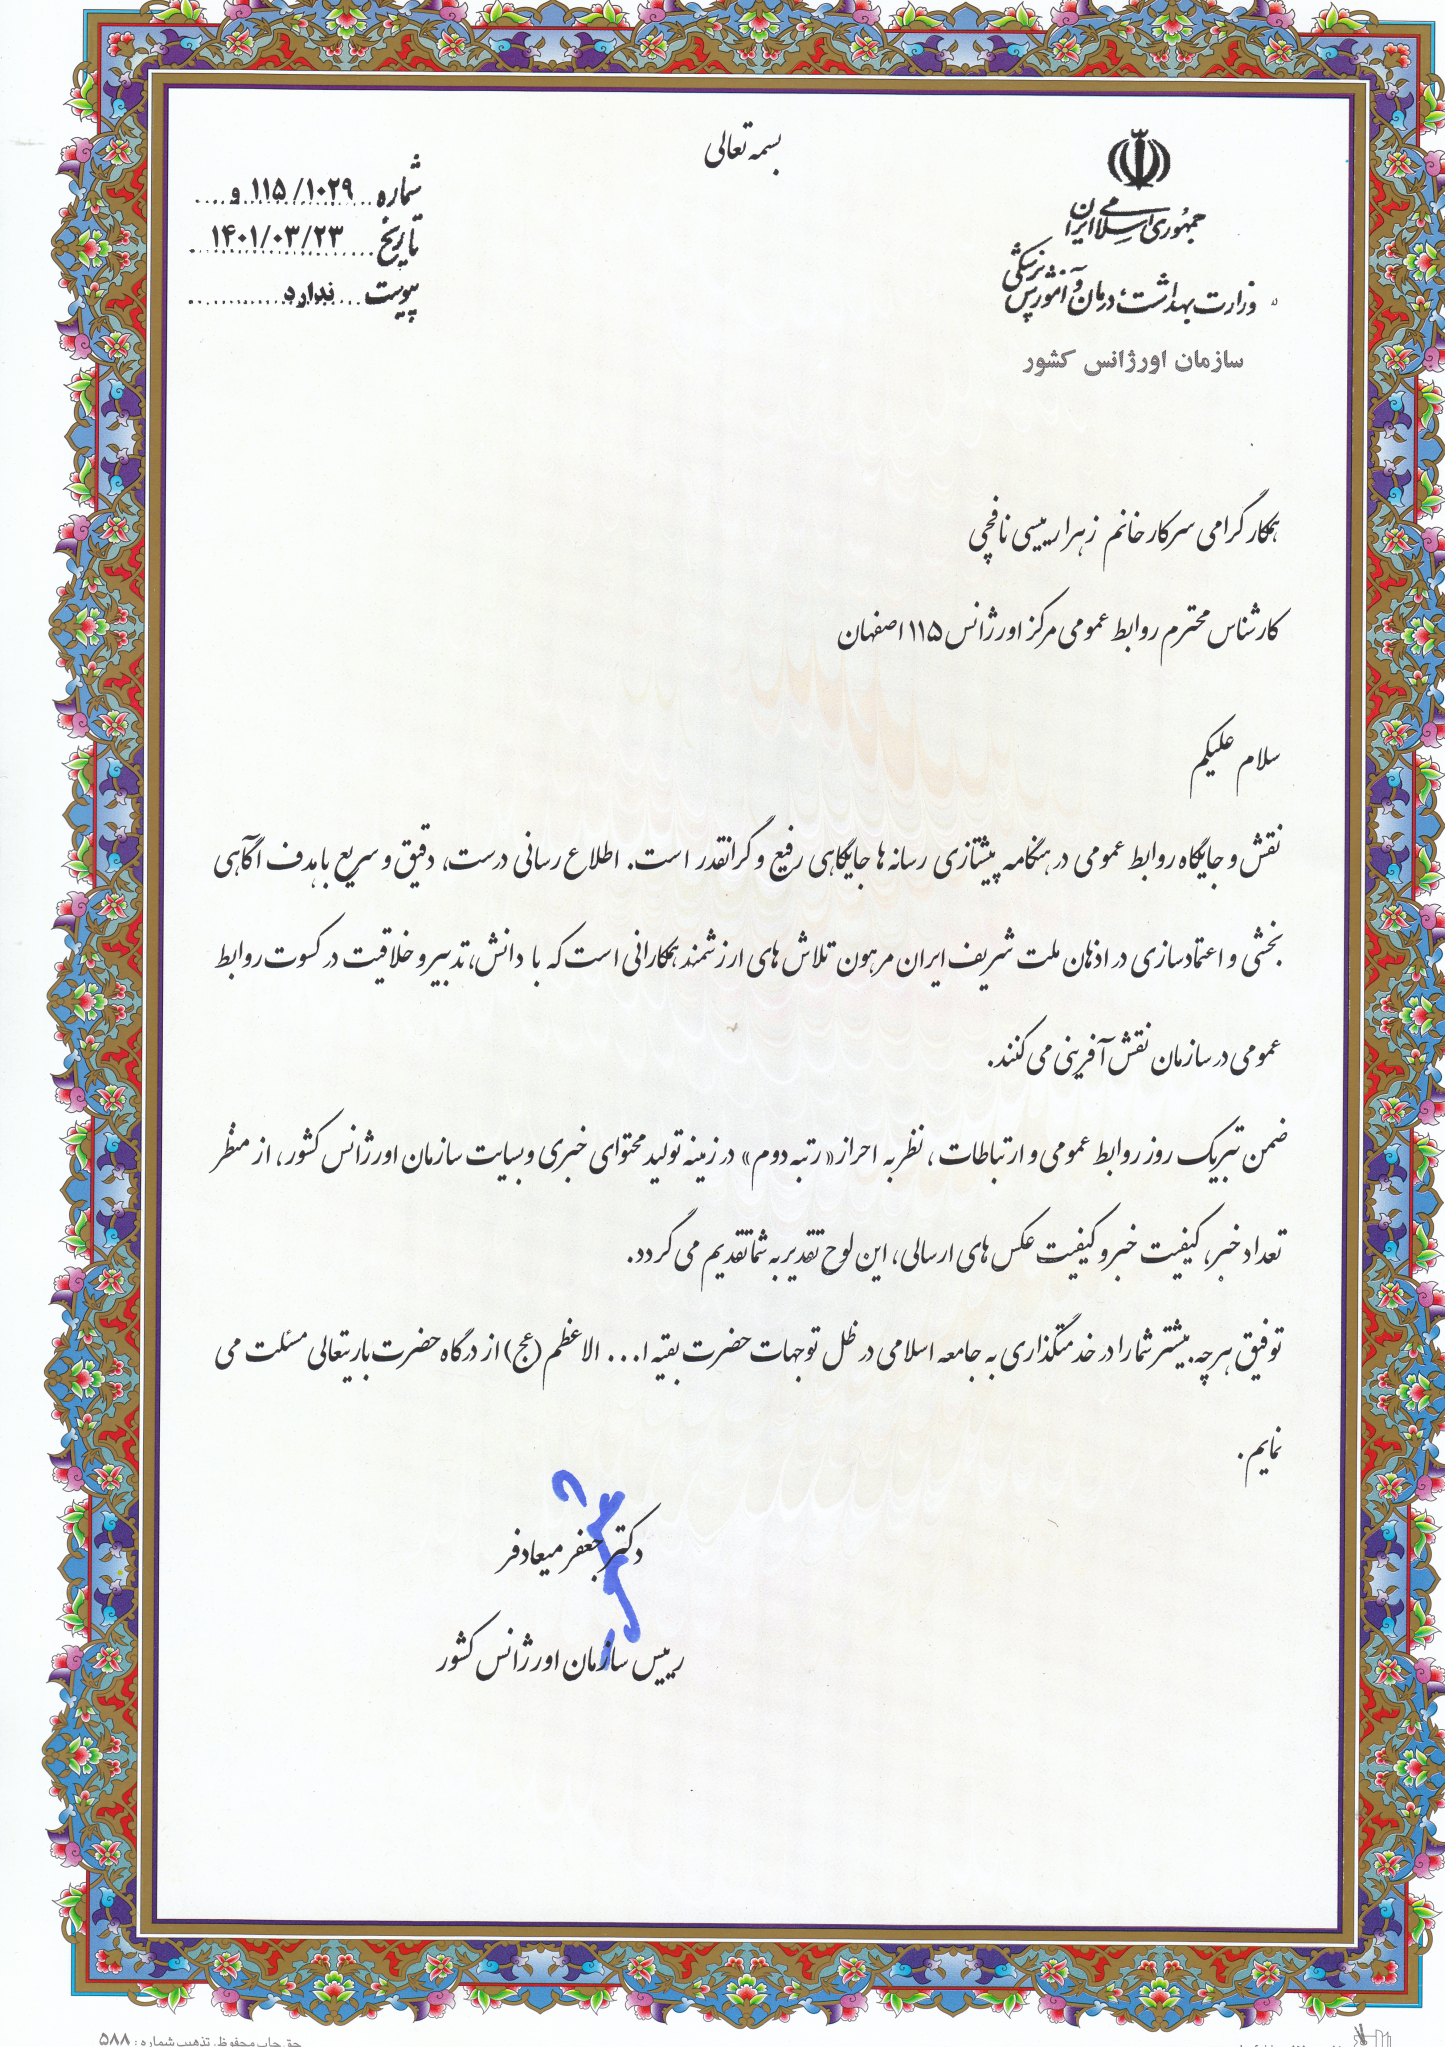 بسمه تعالی
جمهوری اسلامی ایران
وزارت بهداشت، درمان و آموزش پزشکی
سازمان اورژانس کشور
شماره ۱۱۵/۱۰۲۹ و
تاریخ ۱۴۰۱/۰۳/۲۳
پیوست ندارد
همکار گرامی سرکار خانم زهرا رییسی نافچی
کارشناس محترم روابط عمومی مرکز اورژانس ۱۱۵ اصفهان
سلام علیکم
نقش و جایگاه روابط عمومی در هنگامه پیشتازی رسانه ها جایگاهی رفیع و گرانقدر است. اطلاع رسانی درست، دقیق و سریع با هدف آگاهی
بخشی و اعتمادسازی در اذهان ملت شریف ایران مرهون تلاش های ارزشمند همکارانی است که با دانش، تدبیر و خلاقیت در کسوت روابط
عمومی در سازمان نقش آفرینی می کنند.
ضمن تبریک روز روابط عمومی و ارتباطات، نظر به احراز «رتبه دوم» در زمینه تولید محتوای خبری وبسایت سازمان اورژانس کشور، از منظر
تعداد خبر، کیفیت خبر و کیفیت عکس های ارسالی، این لوح تقدیر به شما تقدیم می گردد.
توفیق هرچه بیشتر شما را در خدمتگذاری به جامعه اسلامی در ظل توجهات حضرت بقیه ا... الاعظم (عج) از درگاه حضرت باریتعالی مسئلت می
نمایم.
دکتر جعفر میعادفر
رییس سازمان اورژانس کشور
حق چاپ محفوظ. تذهیب شماره: ۵۸۸